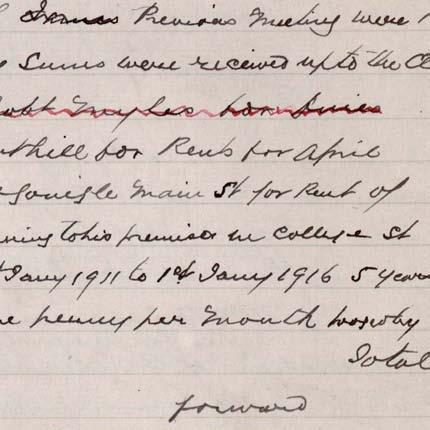 Previous Meeting were
Sums were received up to the
for
thill for Rent for April
Main St for Rent of
to his premises in College St
Jany 1911 to 1st Jany 1916 5 years
penny per Month
Total
forward